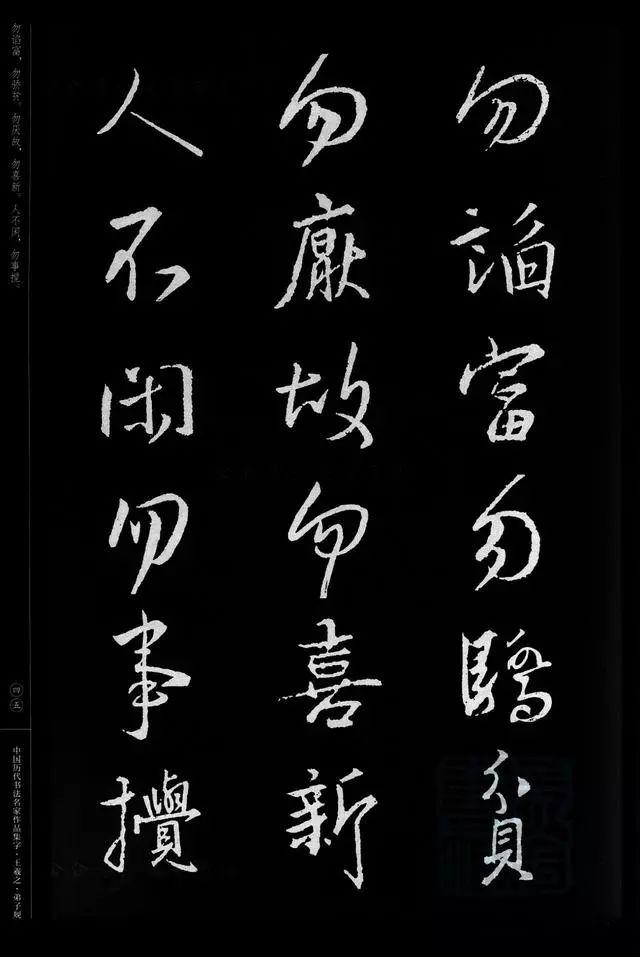 勿諂富勿驕貧
勿厭故勿喜新
人不閑勿事攪
勿谄富，勿骄贫。勿厌故，勿喜新。人不闲，勿事搅。
四五
中国历代书法名家作品集字·王羲之·弟子规